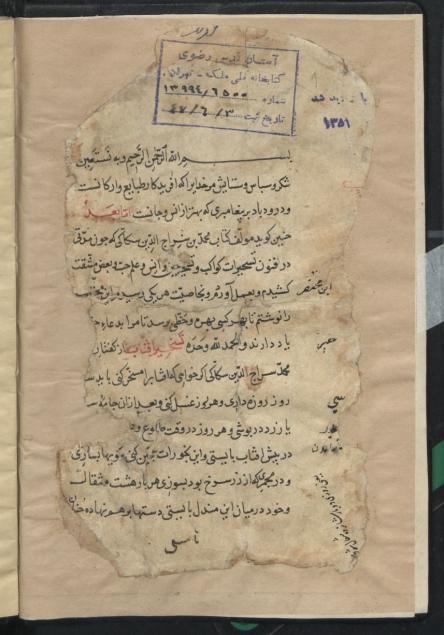 آستان قدس رضوی
کتابخانه ملی ملک - تهران
شماره ۱۳۹۹۴/۶۵۰۰
تاریخ ثبت ۴۷/۶/۳
باز دید شد
۱۳۵۱
بسم الله الرحمن الرحیم وبه نستعین
شکر و سپاس و ستایش مر خدایرا که افریدکار طبایع وارکانست
و درود باد بر پیغامبری که بهتراز انس و جانست اما بعد
چنین کوید مولف کتاب محمد بن سراج الدین سکاکی که چون مدتی
در فنون تسخیرات کواکب و تسخیر جن و انس و علم بعضی مشقت
کشیدم و بعمل آوردم و بخاصیت هر یکی رسیدم این مختصر
را نوشتم تا بهر کسی بهره و حظی رسد تا مرا بدعاء خیر
یاد دارند والحمد لله وحده تسخیر افتاب از کفتار
محمد سراج الدین سکاکی اکر خواهی که افتاب را مسخر کنی باید سی
روز روزه داری و هر روز غسل کنی و بعد ازان جامه
یا زرد در پوشی و هر روز در وقت طلوع
در پیش افتاب بایستی و این بخورات
و در مجمری که از زر سرخ بود بسوزی هر بار هشت مثقال
و خود در میان این مندل بایستی دستها بر هم نهاده